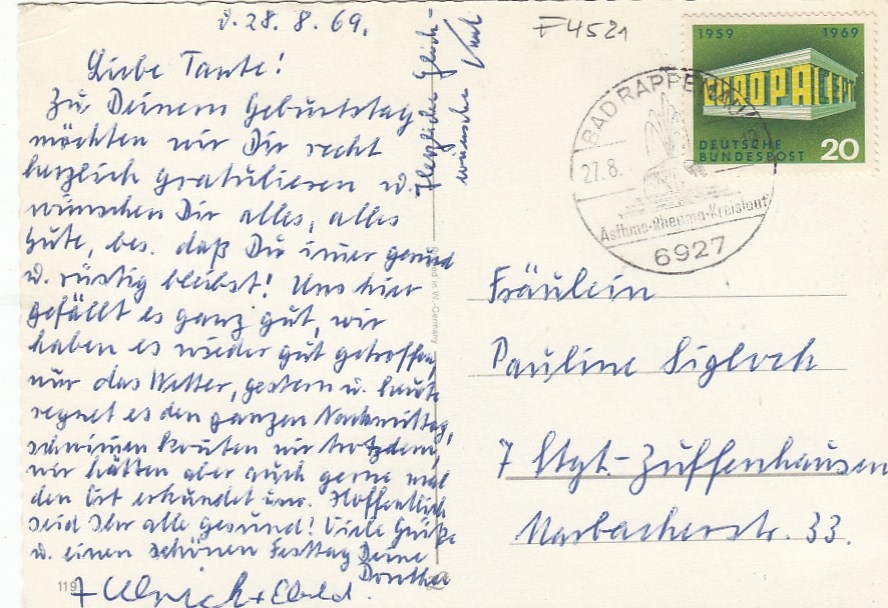 d. 28. 8. 69.
Liebe Tante!
Zu Deinem Geburtstag
möchten wir Dir recht
herzlich gratulieren u.
wünschen Dir alles, alles
Gute, bes. daß Du imer gesund
u. rüstig bleibst! Uns hier
gefällt es ganz gut, wir
haben es wieder gut getroffen,
nur das Wetter, gestern u. heute
regnet es den ganzen Nachmittag,
schwimen konten wir trotzdem,
wir hätten aber auch gerne mal
den Ort erkundet usw. Hoffentlich
seid Ihr alle gesund! Viele Grüße
u. einen schönen Festtag Deine
Dorothee
+ Ulrich +
Herzliche Glück-
wünsche
F4521
1959 1969
EUROPA CEPT
DEUTSCHE
BUNDESPOST 20
BAD RAPPENAU
27.8.
Asthma-Rheuma-Kreislauf
6927
Fräulein
Pauline Sigloch
7 Stgt.-Zuffenhausen
Marbacherstr. 33.
in W.-Germany
119